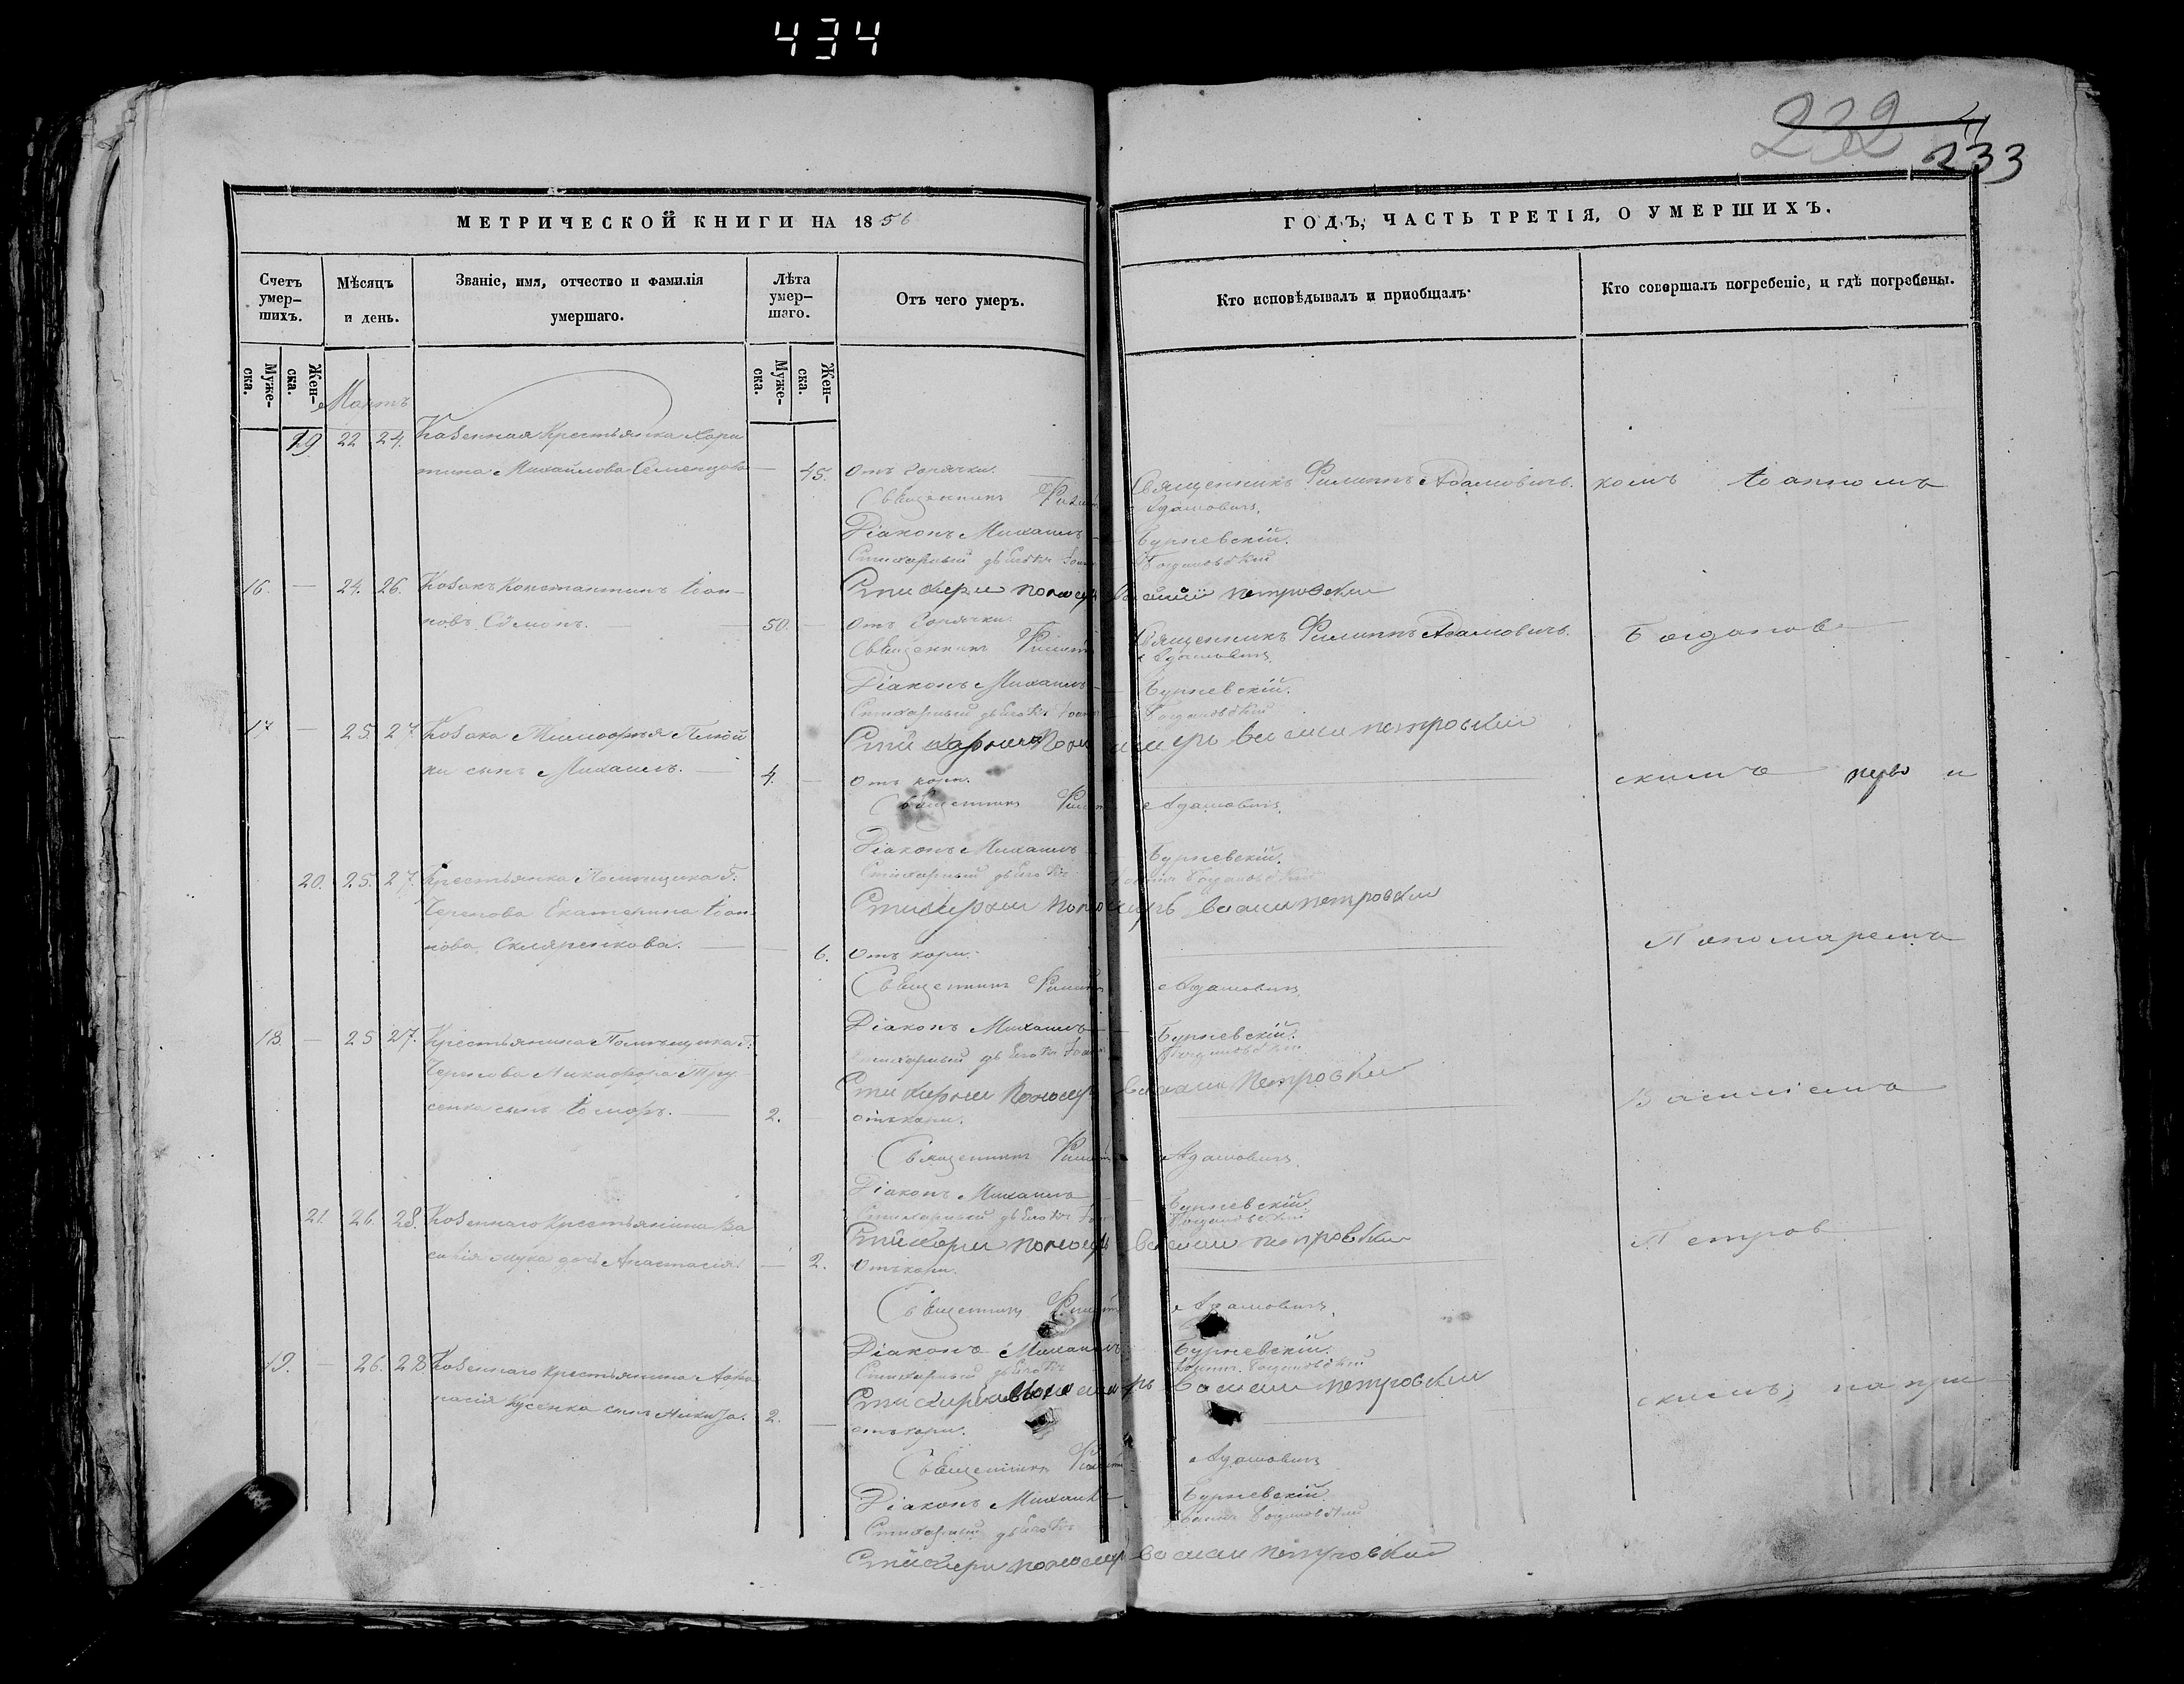 434
232
233
МЕТРИЧЕСКОЙ КНИГИ НА 1856
ГОДЪ, ЧАСТЬ ТРЕТІЯ, О УМЕРШИХЪ.
Счетъ умер–шихъ.
Мѣсяцъ и день.
Званіе, имя, отчество и фамилія умершаго.
Лѣта умер–шаго.
Отъ чего умеръ.
Кто исповѣдывалъ и пріобщалъ.
Кто совершалъ погребеніе, и гдѣ погребены.
Муже–ска.
Жен–ска.
Муже–ска.
Жен–ска.
Мартъ
19 22 24. Казенная Крестьянка Хари
тина Михайлова Семенцова — 45. Отъ горячки. Священникъ Филиппъ Адамовичъ. комъ Іоанномъ
Священникъ Филиппъ Адамовичъ.
Діаконъ Михаилъ Бурневскій.
Стихарный дьячокъ Богдановскій
16. — 24. 26. Козакъ Константинъ Іоан–
Стихарный пономарь Василій Петровскій
новъ 50. — Отъ горячки. Священникъ Филиппъ Адамовичъ. Богданов–
Священникъ Филиппъ Адамовичъ
Діаконъ Михаилъ Бурневскій.
Стихарный дьячокъ Богдановскій
17 — 25. 27. Козака Тимофея
Стихарный Пономарь Василій Петровскій
ки сынъ Михаилъ. — 4. — Отъ кори. скимъ и
Священникъ Адамовичъ.
Діаконъ Михаилъ Бурневскій.
20. 25. 27. Крестьянка Помещика Г.
Стихарный дьячокъ Богдановскій
Черепова Екатерина Іоан–
Стихарный пономарь Василій Петровскій
нова Скляренкова. — 6. Отъ кори. Пономаремъ
Священникъ Адамовичъ
Діаконъ Михаилъ Бурневскій.
18 — 25 27. Крестьянина Помѣщика Г.
Стихарный дьячокъ Богдановскій
Черепова Никифора
Стихарный Пономарь Василій Петровскій
сенка сынъ 2. отъ кори. Василіемъ
Священникъ Адамовичъ.
Діаконъ Михаилъ Бурневскій.
21. 26. 28. Казеннаго Крестьянина Ва
Стихарный дьячокъ Богдановскій
Стихарный пономарь Василій Петровскій
силія дочь Анастасія. — 2. Отъ кори. Петров
Священникъ Адамовичъ.
Діаконъ Михаилъ Бурневскій.
19. — 26. 28. Казеннаго Крестьянина Афа
Стихарный дьячокъ Богдановскій
Стихарный Пономарь Василій Петровскій
насія Кусенка сынъ 2. — отъ кори. скимъ, на при
Священникъ Адамовичъ
Діаконъ Михаилъ Бурневскій.
Стихарный дьячокъ Богдановскій
Стихарный пономарь Василій Петровскій